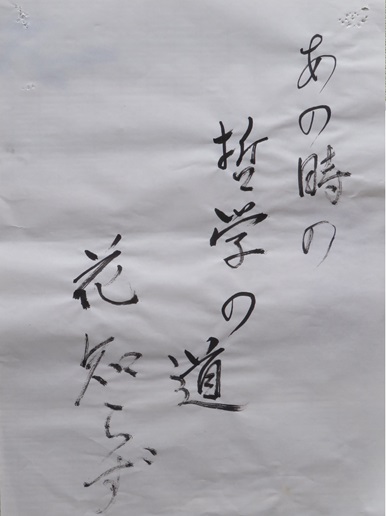 あの時の
哲学の道
花知らず